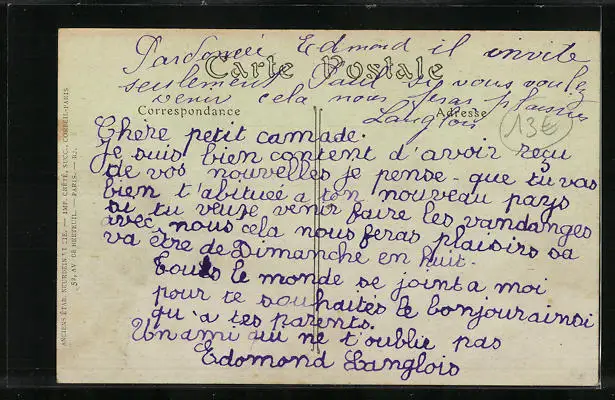 Pardonnée Edmond il invite
Carte Postale
seulement Paul si vous voulez
venir cela nous feras plaisir
Langlois
Correspondance
Adresse
13€
Chère petit camade.
Je suis bien content d'avoir reçu
de vos nouvelles je pense que tu vas
bien t'abituée a ton nouveau pays
si tu veux venir faire les vandanges
avec nous cela nous feras plaisirs sa
va être de Dimanche en huit.
Tous le monde se joint a moi
pour te souhaités le bonjour ainsi
qu'a tes parents.
Un ami qui ne t'oublie pas
Edomond Langlois
ANCIENS ÉTAB. NEURDEIN ET CIE. — IMP. CRÉTÉ, SUCC., CORBEIL-PARIS
52, AV. DE BRETEUIL. — PARIS.